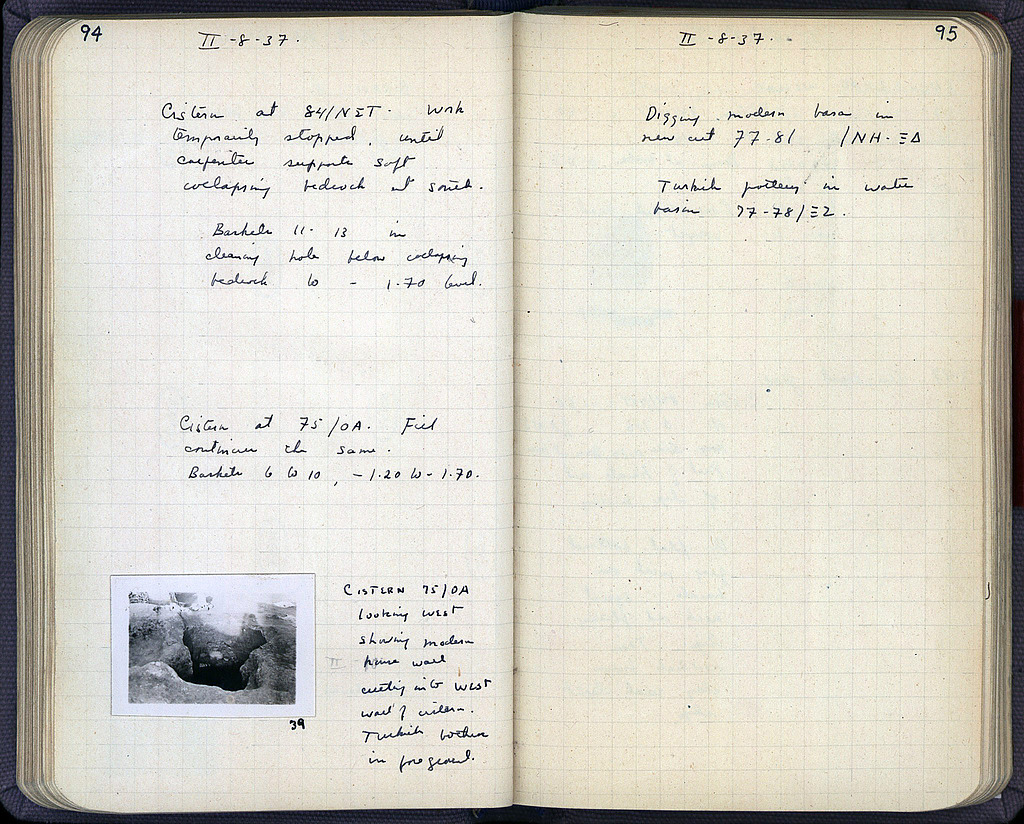 94
II -8-37.
Cistern at 84/ΝΣΤ. Work
temporarily stopped, until
carpenter supports soft
collapsing bedrock at south.
Baskets 11-13 in
clearing hole below collapsing
bedrock to -1.70 level.
Cistern at 75/ΟΑ. Fill
continues the same.
Baskets 6 to 10, -1.20 to -1.70.
CISTERN 75/OA
looking WEST
showing modern
II house wall
cutting into WEST
wall of cistern.
Turkish
in foreground.
39
95
II -8-37.
Digging modern basin in
new cut 77-81 /ΝΗ-ΞΔ
Turkish pottery in water
basin 77-78/Ξ2.